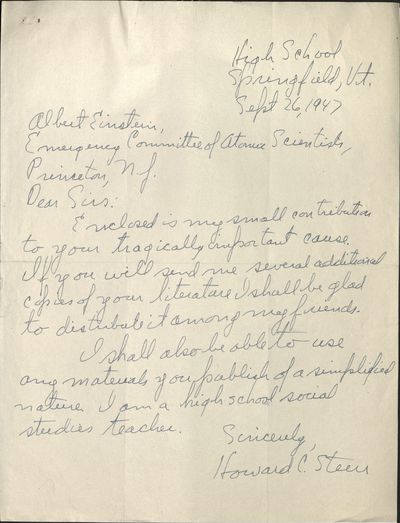 High School
Springfield, Vt.
Sept 26, 1947
Albert Einstein,
Emergency Committee of Atomic Scientists,
Princeton, N.J.
Dear Sirs:
Enclosed is my small contribution
to your tragically important cause.
If you will send me several additional
copies of your literature I shall be glad
to distribute it among my friends.
I shall also be able to use
any materials you publish of a simplified
nature. I am a high school social
studies teacher.
Sincerely,
Howard C. Steen